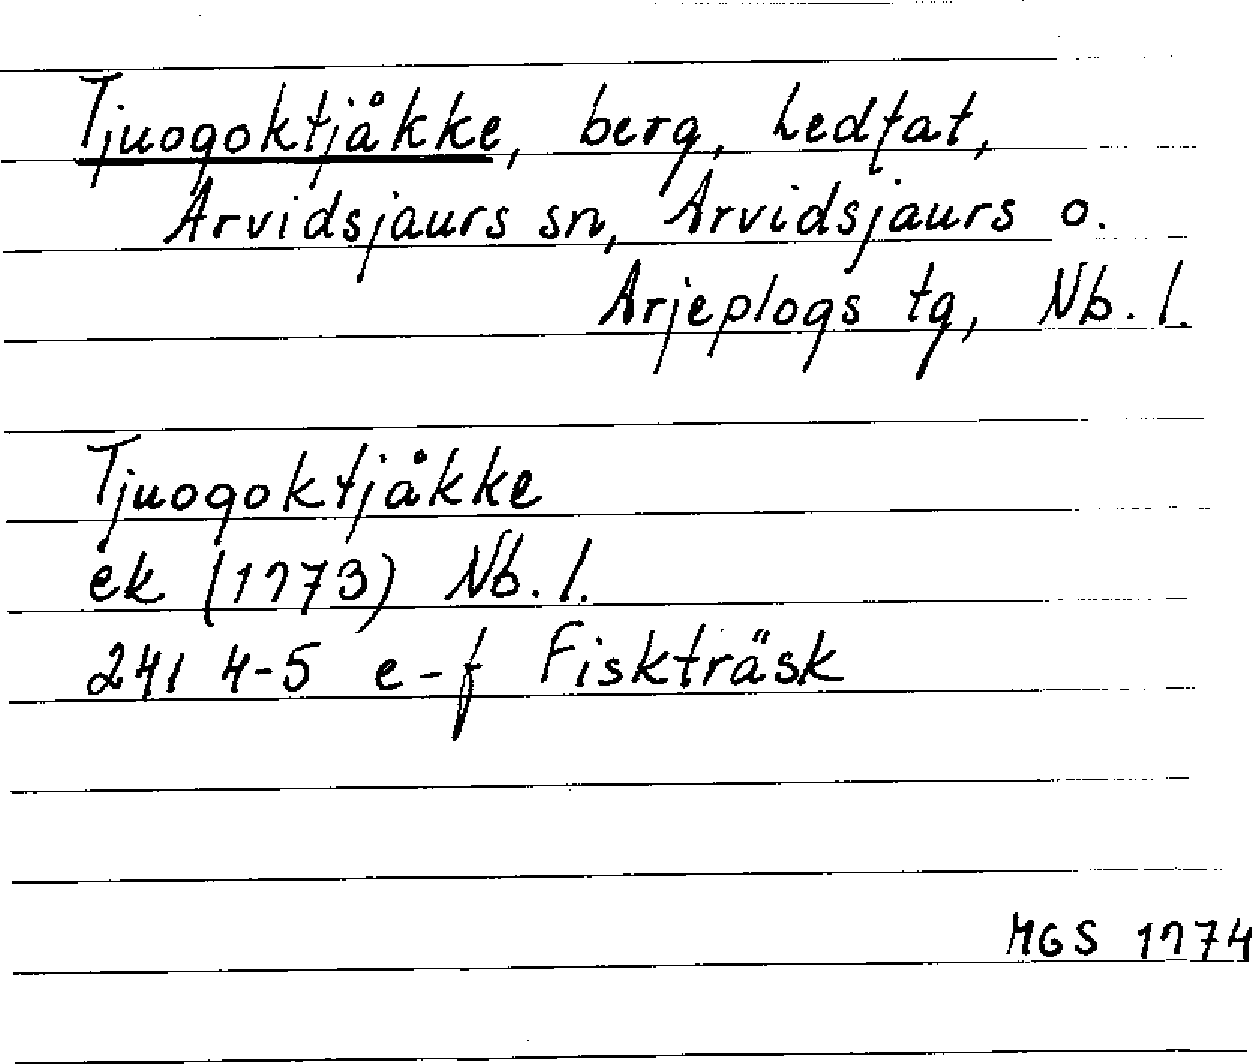 Tjuogoktjåkke, berg, Ledfat,
Arvidsjaurs sn, Arvidsjaurs o.
Arjeplogs tg, Nb. l.
Tjuogoktjåkke
ek (1973) Nb. l.
241 4-5 e-f Fiskträsk
MGS 1974